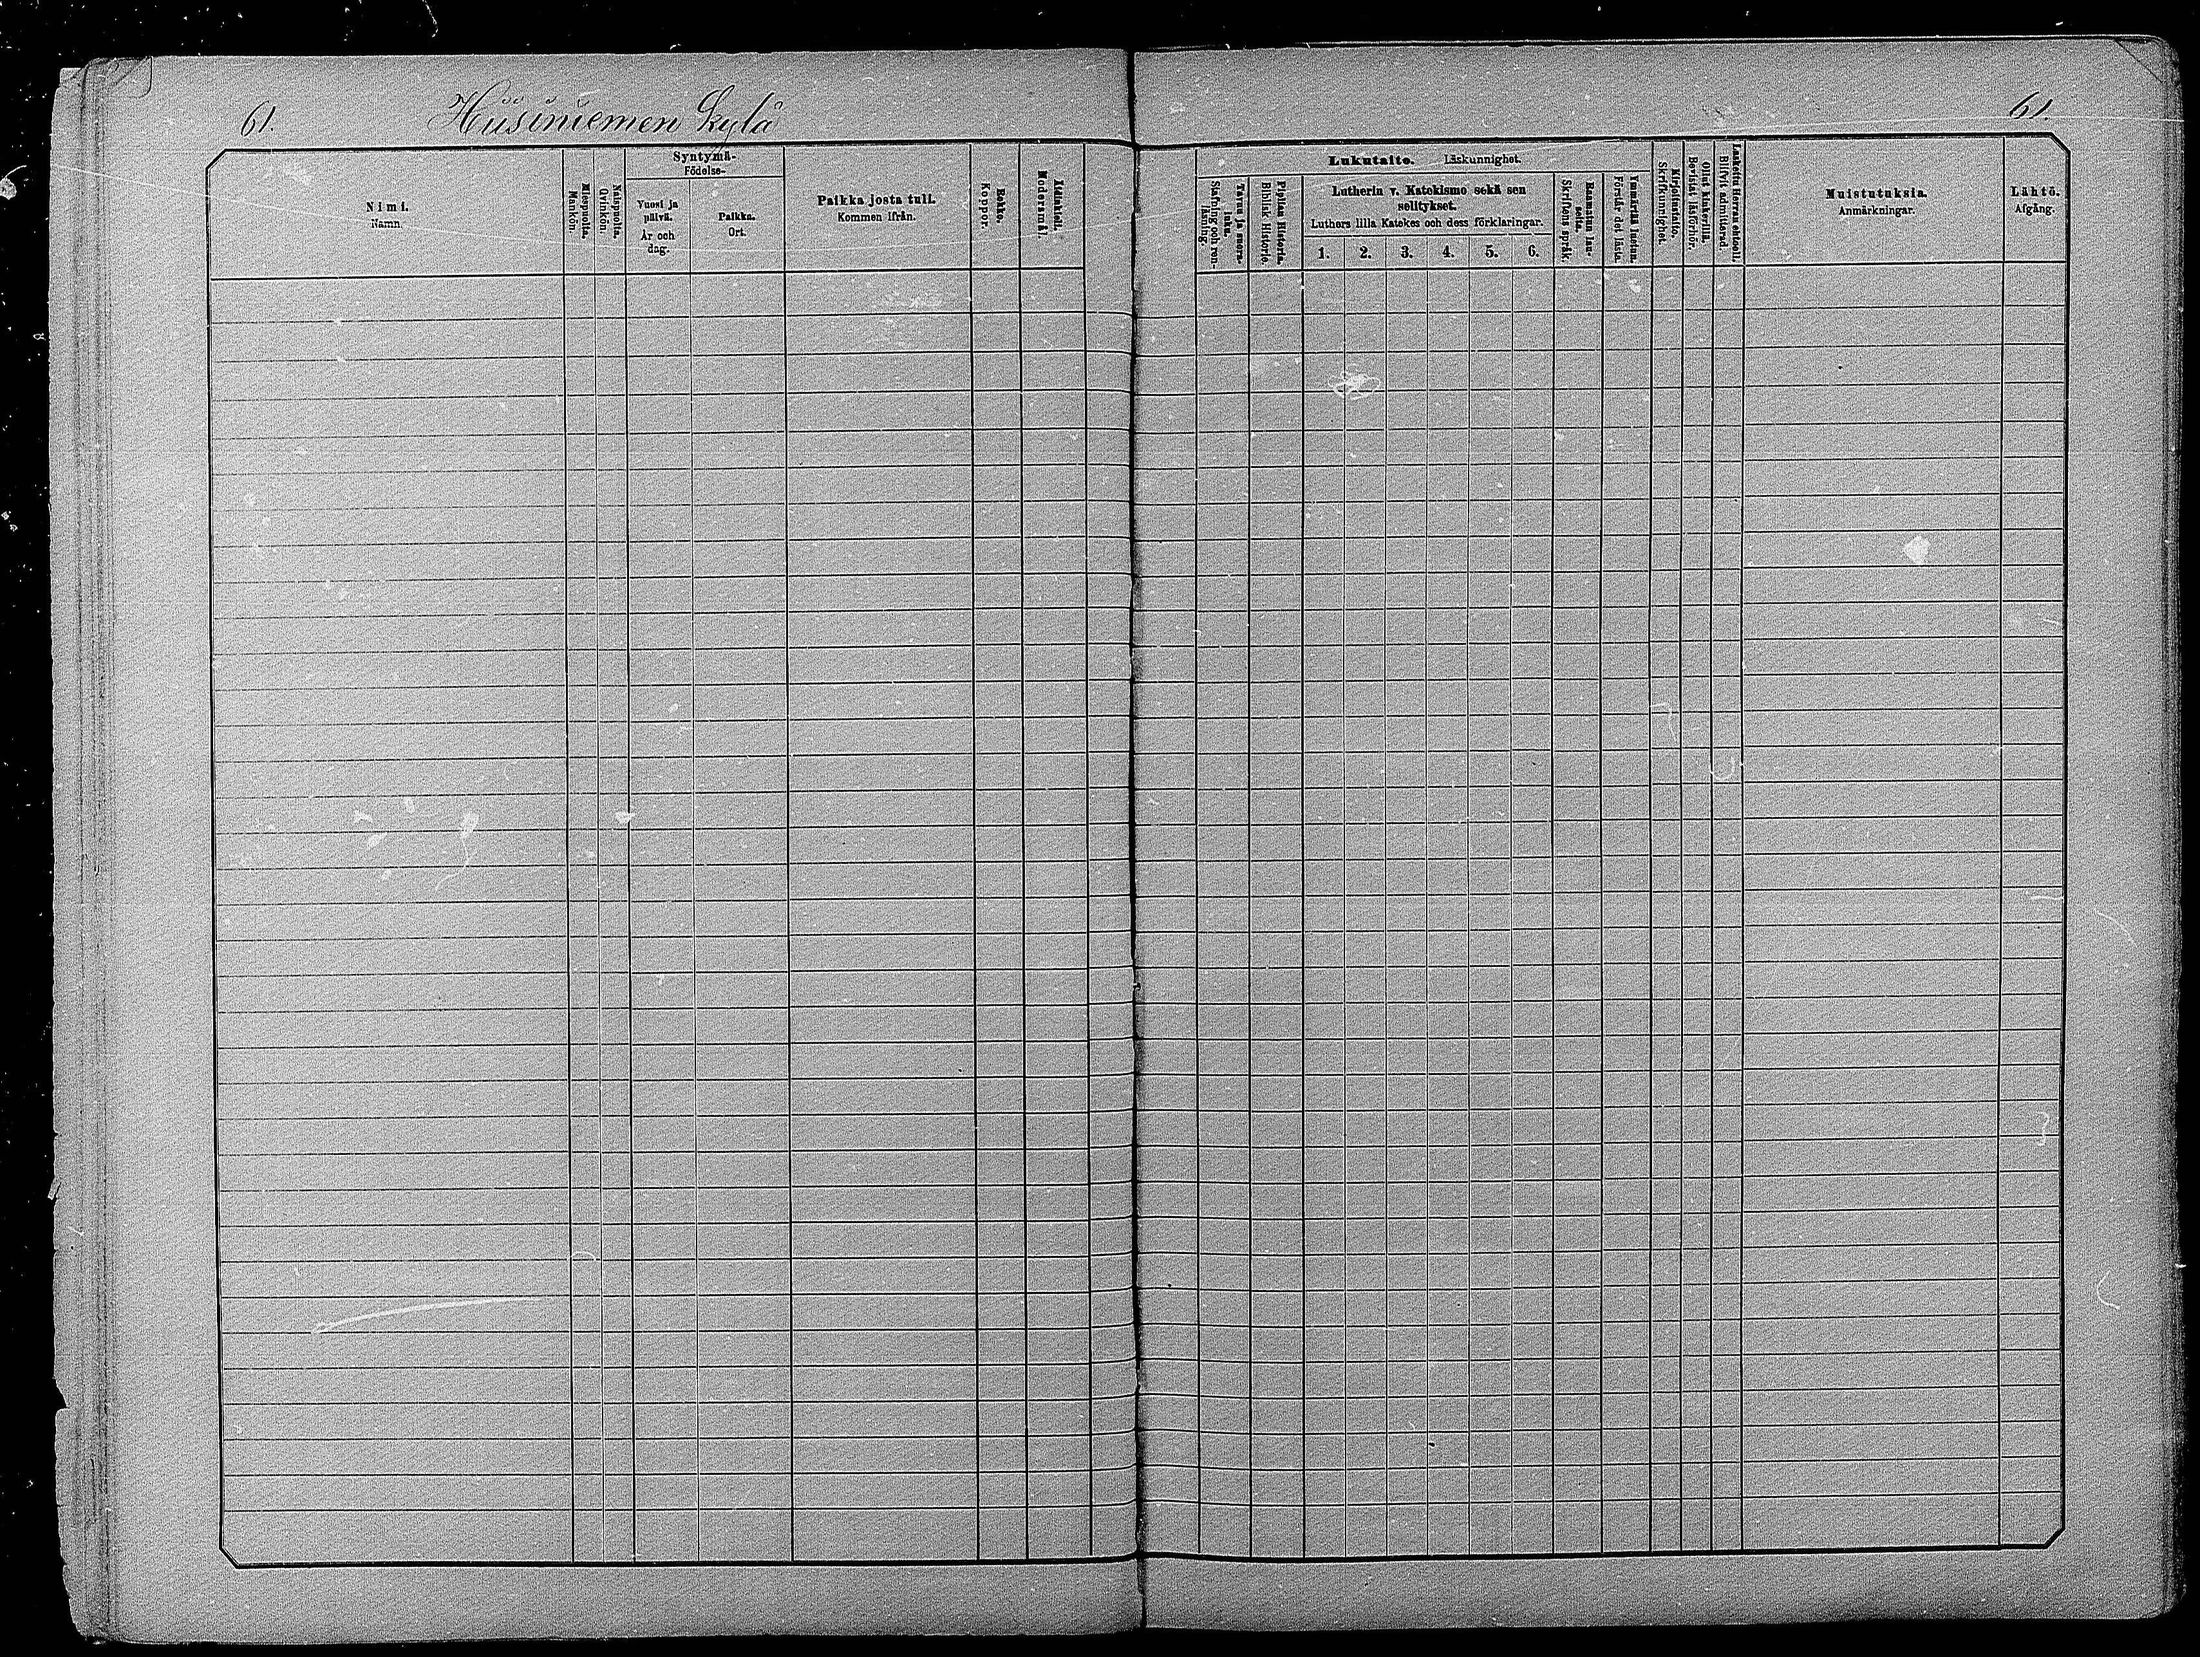 61. Hiisiniemen kylä 61.
Nimi.
Namn.
Miespuolia.
Mankön.
Naispuolia.
Qvinkön.
Syntymä-
Födelse-
Vuosi ja
päivä.
År och
dag.
Paikka.
Ort.
Paikka josta tuli.
Kommen ifrån.
Rokko.
Koppor.
Äidinkieli.
Modersmål.
Lukutaito. Läskunnighet.
Tavuu ja suora-
luku.
Stafning och ren-
läsning.
Piplian Historia.
Biblisk Historie.
Lutherin v. Katekismo sekä sen
selitykset.
Luthers lilla Katekes och dess förklaringar.
1. 2. 3. 4. 5. 6.
Raamatun lau-
seita.
Skriftens språk.
Ymmärtää luetun.
Förstår det lästa.
Kirjoitustaito.
Skrifkunnighet.
Ollut kinkerillä.
Bevistat läsförhör.
Laskettu Herran ehtoolli
Blifvit admitterad.
Muistutuksia.
Anmärkningar.
Lähtö.
Afgång.